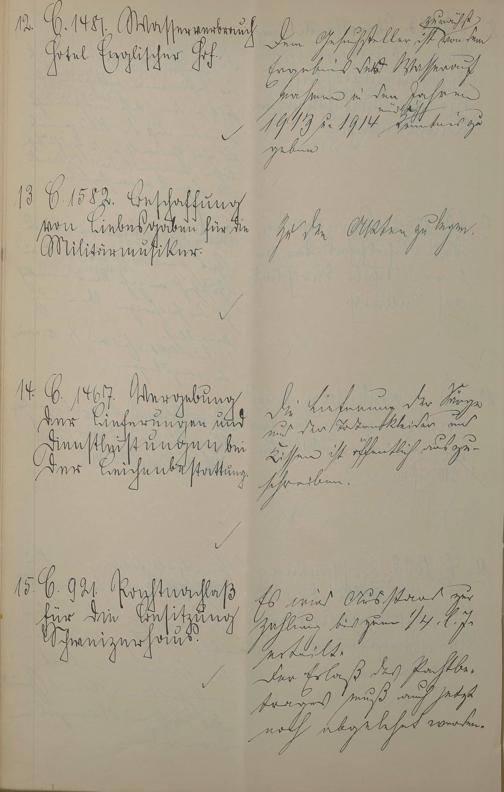 12. C. 1481. Wasserverbrauch
Hotel Englischer Hof.
zunächst
Dem Gesuchsteller ist von dem
Ergebnis der Wasserauf
nahmen in den Jahren
1913 u. 1914 Kenntnis zu
geben
13 C. 1582. Beschaffung
von Liebesgaben für die
Militärmusiker.
Zu den Akten zu legen.
14. C. 1467. Vergebung
der Lieferungen und
Dienstleistungen bei
der Leichenbestattung.
Die Lieferung der Särge
und der Totenkleider und
Kissen ist öffentlich auszu-
schreiben.
15. C. 921. Pachtnachlaß
für die Besitzung
"Schweizerhaus".
Es wird Ausstand zur
Zahlung bis zum 1/4. l. J.
erteilt.
Der Erlaß des Pachtbe-
trages muß auch jetzt
noch abgelehnt werden.